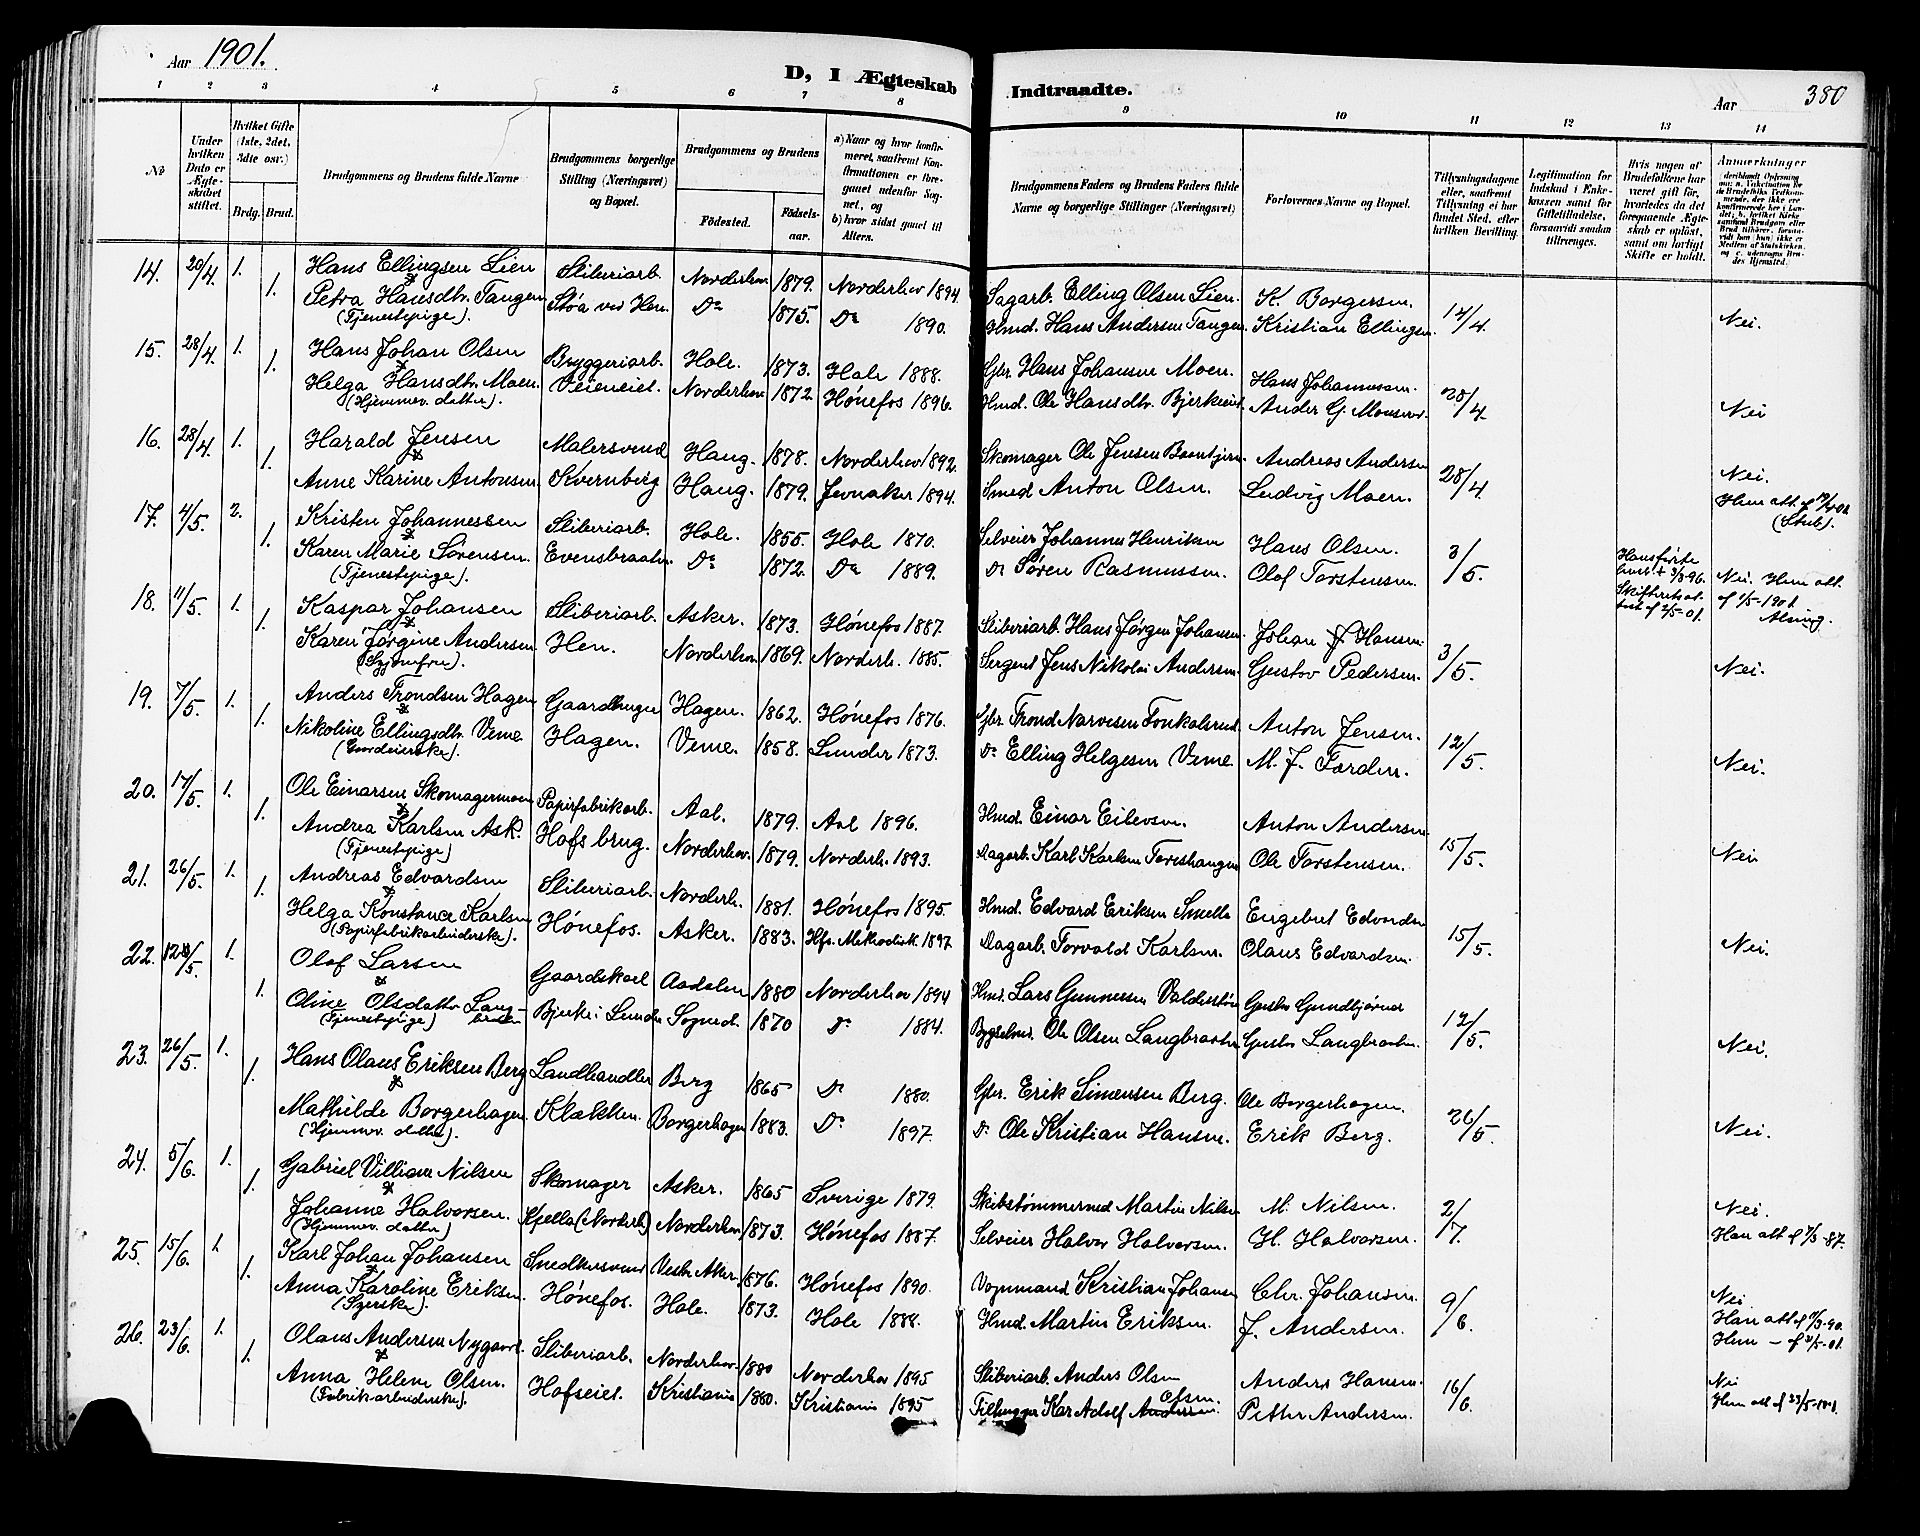 Aar 1901.
D, I Ægteskab Indtraadte.
Aar 380
1 2 3 4 5 6 7 8 9 10 11 12 13 14
No
Under hvilken Dato er Ægteskabet stiftet.
Hvilket Gifte (1ste, 2det, 3die osv.)
Brdg. Brud.
Brudgommens og Brudens fulde Navne
Brudgommens borgerlige Stilling (Næringsvei) og Bopæl.
Brudgommens og Brudens
Fødested. Fødsels-aar.
a) Naar og hvor konfirmeret, saafremt Konfirmationen er foregaaet udenfor Sognet, og b) hvor sidst gaaet til Alters.
Brudgommens Faders og Brudens Faders fulde Navne og borgerlige Stillinger (Næringsvei)
Forlovernes Navne og Bopæl.
Tillysningsdagene eller, saafremt Tillysning ei har fundet Sted, efter hvilken Bevilling.
Legitimation for Indskud i Enkekassen samt for Giftetilladelse, forsaavidt saadan tiltrænges.
Hvis nogen af Brudefolkene har været gift før, hvorledes da det foregaaende Ægteskab er opløst, samt om lovligt Skifte er holdt.
Anmerkninger
14. 20/4 1. Hans Ellingsen Lien Sliberiarb. Norderhov 1879. Norderhov 1894. Sagarb. Elling Olsen Lien. K. Borgersen. 14/4 Nei.
1. Petra Hansdtr. Tangen Støa ved Hen. Do 1875. Do 1890. Hmd. Hans Andersen Tangen Kristian Ellingsen.
(Tjenestepige).
15. 28/4 1. Hans Johan Olsen Bryggeriarb. Hole. 1873. Hole 1888. Gbr. Hans Johansen Moen. Hans Johannessen. 28/4 Nei
1. Helga Hansdtr. Moen. Veieneiet. Norderhov 1872. Hønefos 1896. Hmd. Ole Hansdtr. Anders G.
(Hjemmev. datter).
16. 28/4 1. Harald Jensen Malersvend Haug. 1878. Norderhov 1892. Skomager Ole Jensen Andreas Andersen 28/4 Nei.
1. Anne Karine Antonsen Kvernberg Haug. 1879. Jevnaker 1894. Smed Anton Olsen. Ludvig Moen. Hun att. af
17. 4/5. 2. Kristen Johannessen Sliberiarb. Hole. 1855. Hole 1870. Selveier Johannes Henriksen Hans Olsen. 3/5 Hans første
1. Karen Marie Sørensen. Evensbraaten Do 1872. Do 1889. Do Søren Rasmussen. Olof Torstensen. Nei. Hun att. af 1/5-1901.
(Tjenestepige).
18. 11/5. 1. Kaspar Johansen Sliberiarb. Asker. 1873. Hønefos 1887. Sliberiarb. Hans Jørgen Johansen. Johan J. Hansen. 3/5 Nei.
1. Karen Jørgine Andersen Hen. Norderhov 1869. Norderh. 1885. Sergent Jens Nikolai Andersen Gustav Pedersen.
(Syjomfru).
19. 7/5. 1. Anders Trondsen Hagen Gaardbruger Hagen. 1862. Hønefos 1876. Gbr. Trond Narvesen Anton Jensen. 12/5 Nei.
1. Nikoline Ellingsdtr. Veme Hagen. Veme. 1858. Lunder 1873. Do Elling Helgesen Veme M. J. Færden.
(Gardeierske).
20. 17/5. 1. Ole Einarsen Skomagermoen Papirfabrikarb. Aal. 1879. Aal 1896. Hmd. Einar Eilevsen. Anton Andersen 15/5. Nei
1. Andrea Karlsen Ask. Hofs brug. Norderhov. 1879. Norderh. 1893. Dagarb. Karl Karlsen Ole Torstensen.
(Tjenestepige)
21. 26/5. 1. Andreas Edvardsen Sliberiarb. Norderh. 1881. Hønefos 1895. Hmd. Edvard Eriksen Smelle Engebret Edvardsen 15/5. Nei.
1. Helga Konstance Karlsen Hønefos. Asker. 1883. Hfs. Methodistk. 1897. Dagarb. Torvald Karlsen. Olaus Edvardsen.
(Papirfabrikarbeiderske).
22. 1. Olof Larsen Gaardskarl Aadalen 1880 Norderhov 1894 Hmd. Lars Gunnersen Gustav Gundbjørnsen 12/5. Nei.
1. Oline Olsdatter Langbraaten Bjerke i Lunder Sogned. 1870 Do 1884. Bygselmd. Ole Olsen Langbraaten Gustav Langbraaten.
(Tjenestepige)
23. 26/5. 1. Hans Olaus Eriksen Berg Landhandler Berg 1865 Do 1880. Gbr. Erik Simensen Berg. Ole Borgerhagen. 26/5. Nei.
1. Mathilde Borgerhagen. Klækken. Borgerhagen 1883. Do 1897. Do Ole Kristian Hansen. Erik Berg.
(Hjemmev. datter).
24. 5/6. 1. Gabriel Villiam Nilsen Skomager Asker. 1865 Sverige 1879. Skibstømmermd Martin Nilsen M. Nilsen. 2/7. Nei.
1. Johanne Halvorsen. Kjella (Norderh.) Norderhov. 1873. Hønefos 1887. Selveier Halvor Halvorsen. H. Halvorsen.
(Hjemmev. datter)
25. 15/6. 1. Karl Johan Johansen Snedkersvend Vestre Aker. 1876. Hønefos 1890. Vognmand Kristian Johansen Chr. Johansen. 9/6 Nei
1. Anna Karoline Eriksen. Hønefos. Hole. 1873. Hole 1888. Hmd. Martin Eriksen. J. Andersen.
(Syerske).
26. 23/6. 1. Olaus Andersen Nygaard Sliberiarb. Norderhov. 1880 Norderhov 1895 Sliberiarb. Anders Olsen Anders Hansen. 16/6. Nei
1. Anna Helene Olsen. Hofseiet. Kristiania 1880. Kristiania 1895 Karl Adolf Andersen Olsen. Petter Andersen.
(Fabrikarbeiderske).